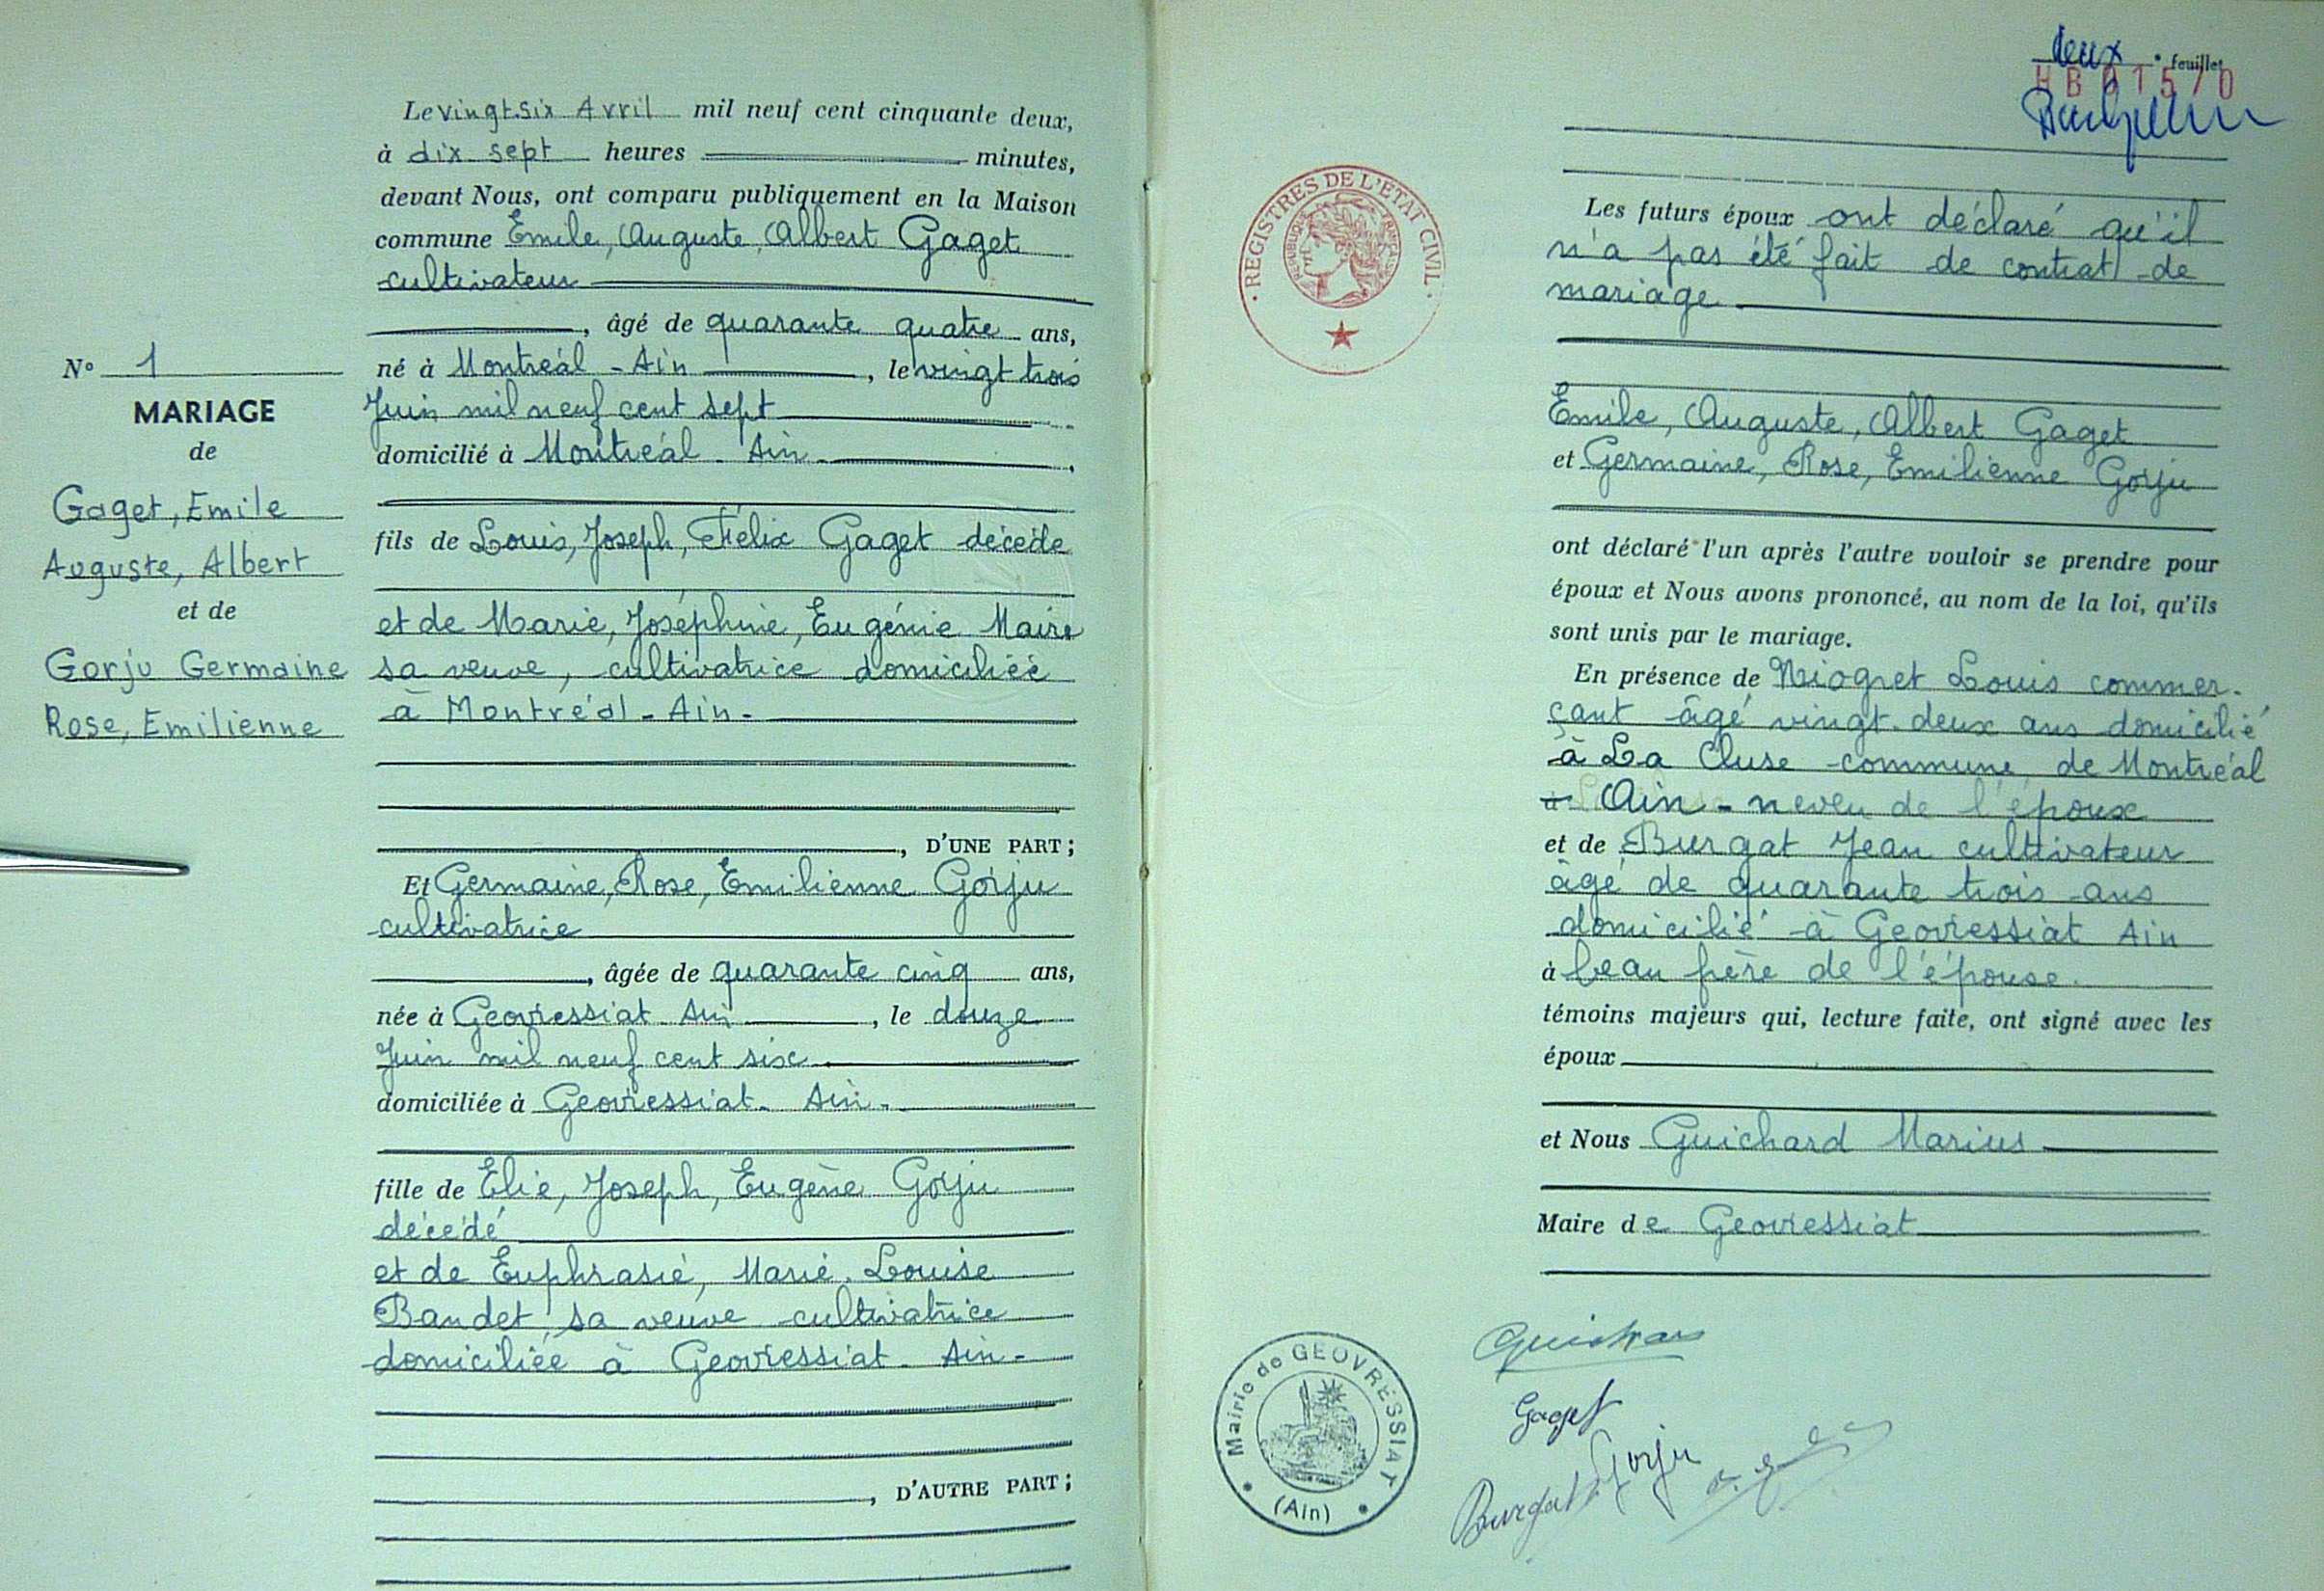 N° 1
MARIAGE
de
Gaget, Emile
Auguste, Albert
et de
Gorju Germaine
Rose, Emilienne
Le vingt.six Avril mil neuf cent cinquante deux,
à dix sept heures minutes,
devant Nous, ont comparu publiquement en la Maison
commune Emile, Auguste, Albert Gaget
cultivateur
, âgé de quarante quatre ans,
né à Montréal - Ain , le vingt trois
Juin mil neuf cent sept
domicilié à Montréal - Ain.
fils de Louis, Joseph, Félix Gaget décédé
et de Marie, Joséphine, Eugénie Maire
sa veuve, cultivatrice domiciliée
à Montréal - Ain -
, D'UNE PART ;
Et Germaine, Rose, Emilienne Gorju
cultivatrice
, âgée de quarante cinq ans,
née à Geovressiat Ain , le douze
Juin mil neuf cent six
domiciliée à Geovressiat - Ain -
fille de Elie, Joseph, Eugène Gorju
décédé
et de Euphrasie, Marie, Louise
Baudet, sa veuve cultivatrice
domiciliée à Geovressiat - Ain -
, D'AUTRE PART ;
deux e feuillet
REGISTRES DE L'ETAT CIVIL
REPUBLIQUE FRANÇAISE
Les futurs époux ont déclaré qu'il
n'a pas été fait de contrat de
mariage
Emile, Auguste, Albert Gaget
et Germaine, Rose, Emilienne Gorju
ont déclaré l'un après l'autre vouloir se prendre pour
époux et Nous avons prononcé, au nom de la loi, qu'ils
sont unis par le mariage.
En présence de Niogret Louis commer-
çant âgé vingt-deux ans domicilié
à La Cluse commune de Montréal
à Ain - neveu de l'époux
et de Burgat Jean cultivateur
âgé de quarante trois ans
domicilié à Geovressiat Ain
à beau frère de l'épouse.
témoins majeurs qui, lecture faite, ont signé avec les
époux
et Nous Guichard Marius
Maire de Geovressiat
Mairie de GEOVRESSIAT
(Ain)
Guichard
Gaget
Gorju
Burgat